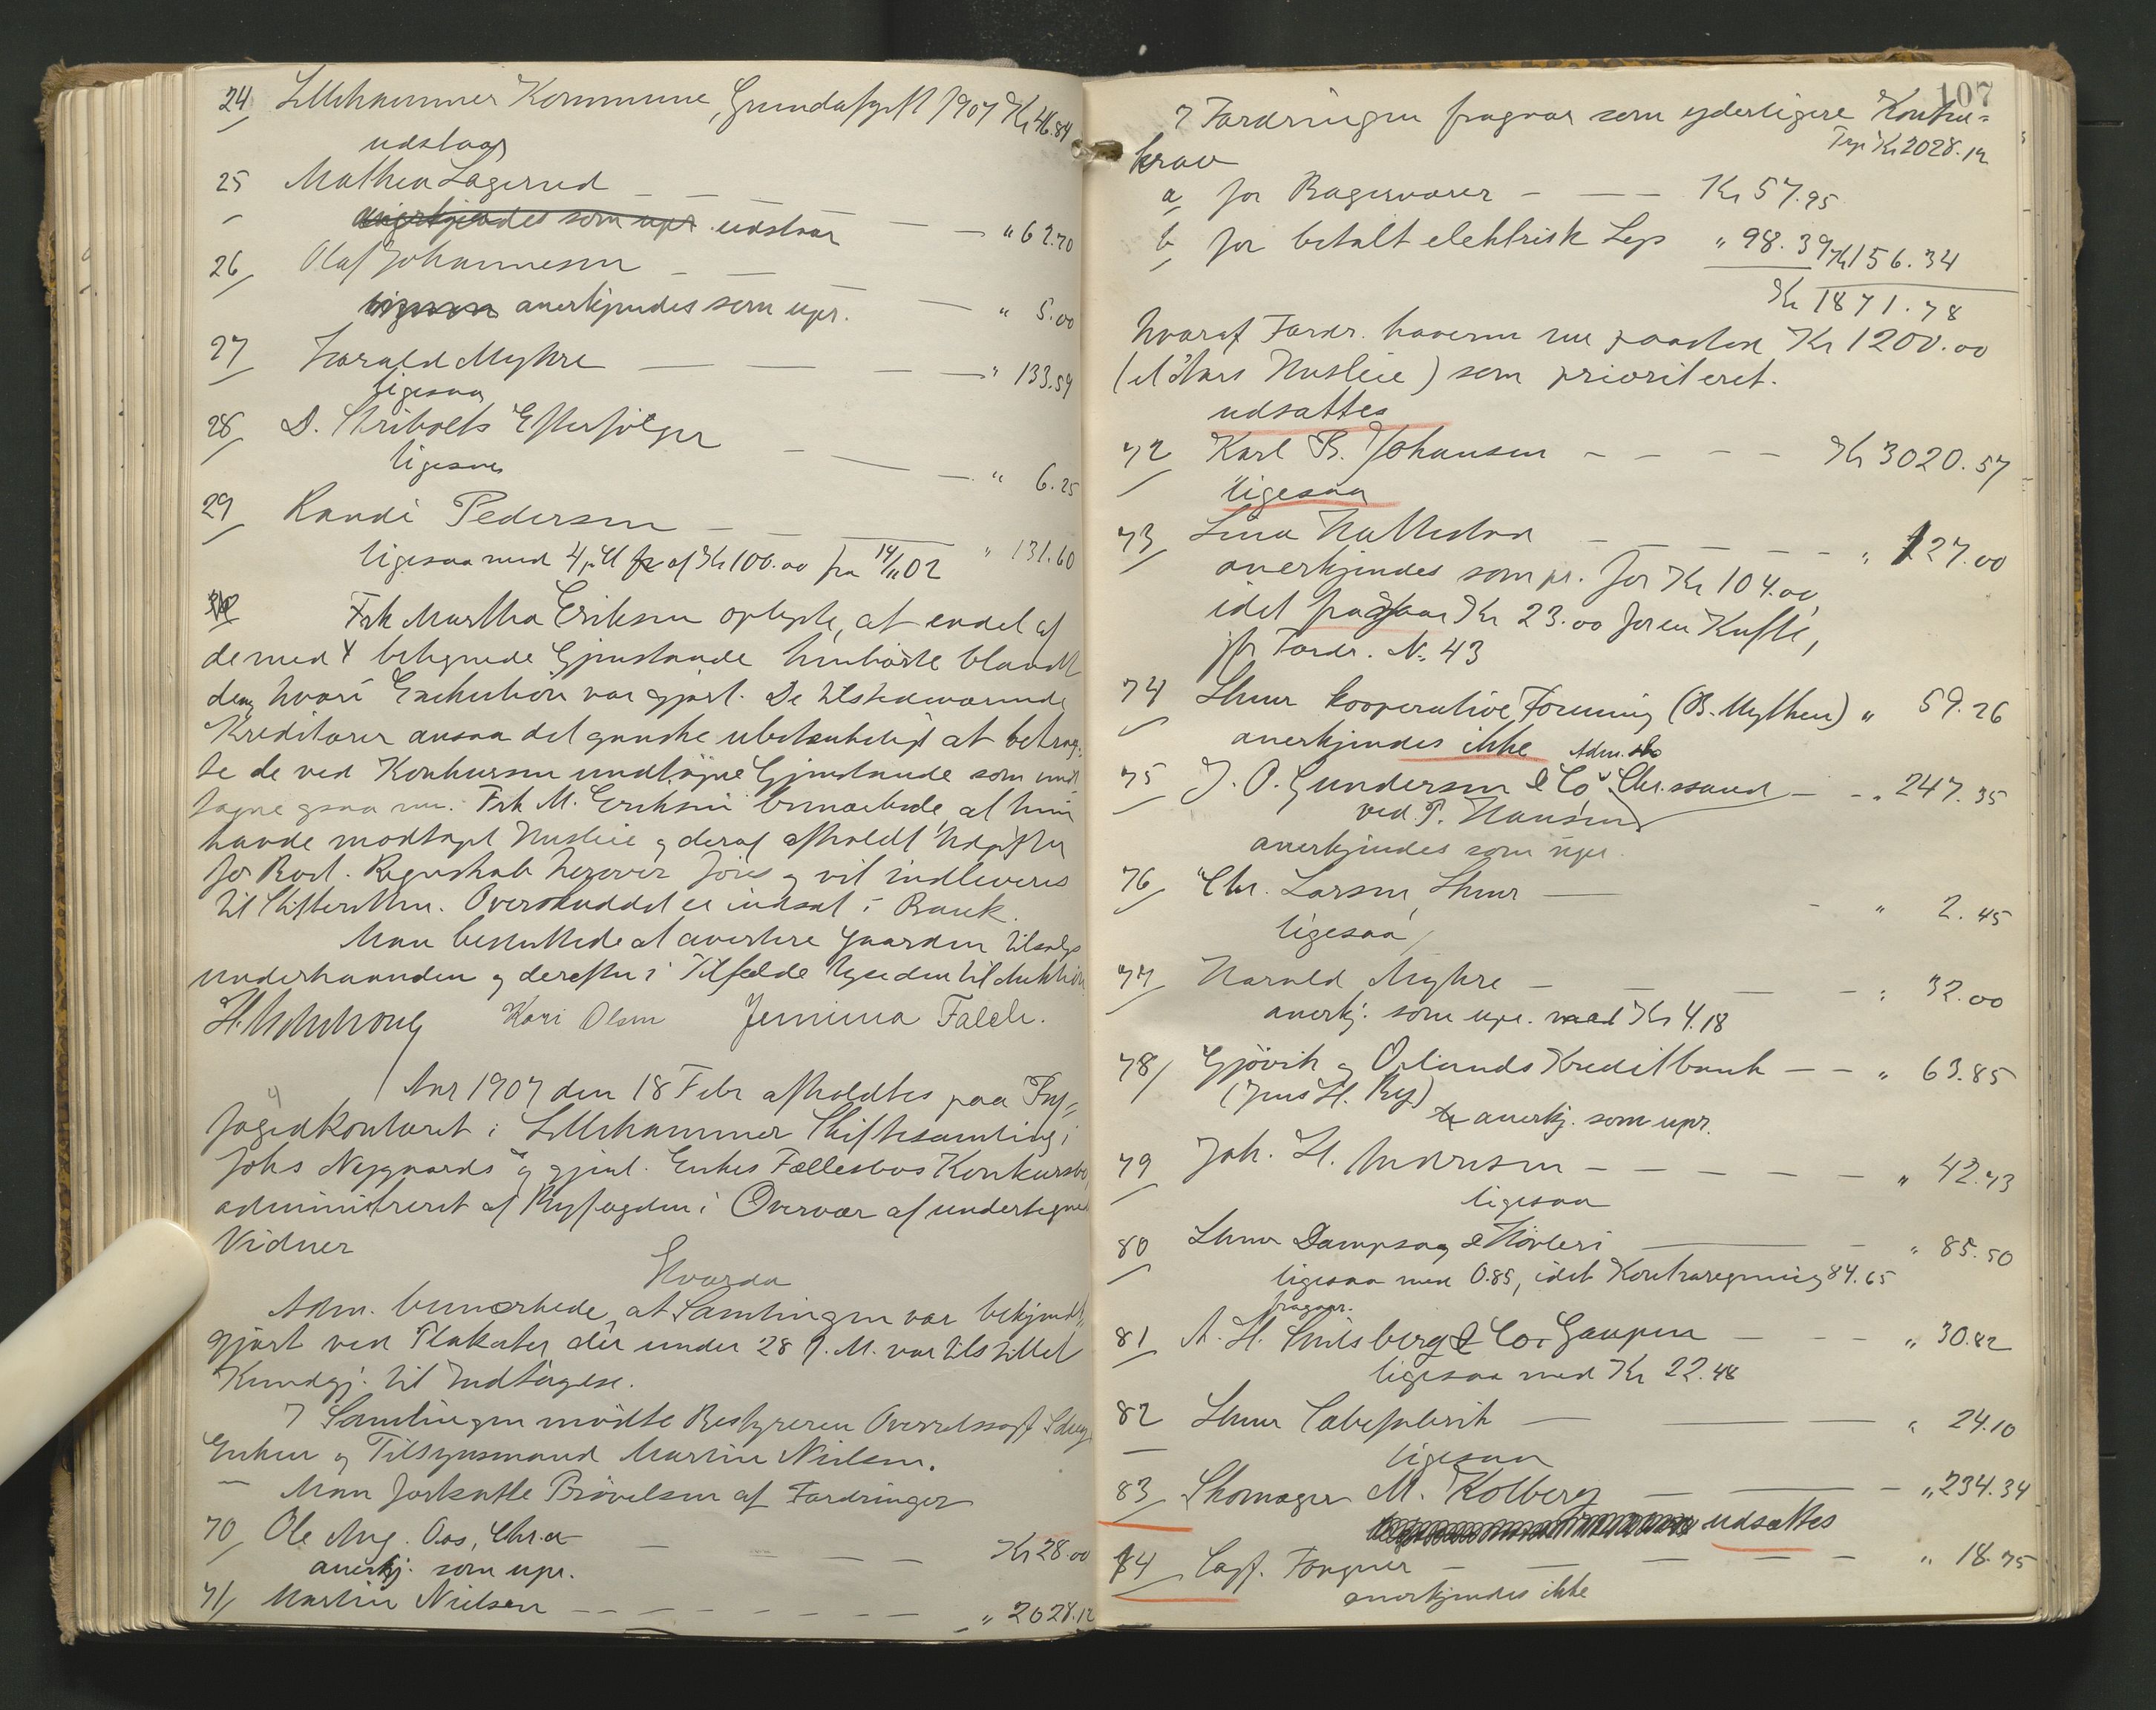 24 Lillehammer Kommune, Grundafgift 1907 Kr 46.84
udstaar
25 Mathea Lagerud
anerkjendes som upr udstaar " 62.70
26 Olaf Johannesen
ligesaa anerkjendes som upr. " 5.00
27 Harald Myhre " 133.59
ligesaa
28 D. Stribolts Efterfølger
ligesaa " 6.25
29 Randi Pedersen
ligesaa med 4% af Kr 100.00 fra 14/11 02 " 131.60
Frk Martha Eriksen oplyste, at endel af
de med X betegnede Gjenstande henhørte blandt
dem hvori Exekution var gjort. De tilstedeværende
Kreditorer ansaa det ganske ubetænkeligt at betrag-
te de ved Konkursen undtagne Gjenstande som und-
tagne ogsaa nu. Frk M. Eriksen bemærkede, at hun
havde modtaget Husleie og deraf afholdt Udgifter
for Boet. Regnskab herover føres og vil indleveres
til Skifteretten. Overskuddet er indsat i Bank.
Man besluttede at avertere Gaarden tilsalgs
underhaanden og derefter i Tilfælde lyse den til Auktion
Kari Olsen Jemima Falch.
Aar 1907 den 18 Febr afholdtes paa By-
fogedkontoret i Lillehammer Skiftesamling i
Johs Nygaards og gjenl. Enkes Fællesbos Konkursbo
administreret af Byfogden i Overvær af undertegnede
Vidner
Hvorda
Adm. bemærkede, at Samlingen var bekjendt-
gjort ved Plakater der under 28 f. M. var tilstillet
Kundgj. til Indtagelse.
I Samlingen mødte Bestyreren Overretssagf.
Enken og Tilsynsmand Martin Nielsen.
Man fortsatte Prøvelsen af Fordringer
70 Ole Aug. Oos, Chr.a Kr 28.00
anerkj. som upr.
71 Martin Nielsen " 2028.12
107
I Fordringen fragaar som yderligere Kontra-
krav Kr 2028.12
a for Bagervarer Kr 57.95
b for betalt elektrisk Lys " 98.39 Kr 156.34
Kr 1871.78
hvoraf Fordr. haveren nu paastod Kr 1200.00
(et Aars Husleie) som prioriteret.
udsattes
72 Karl B. Johansen Kr 3020.57
ligesaa
73 Lina Nattestad " 127.00
anerkjendes som pr. for Kr 104.00,
idet fragaar Kr 23.00 for en Kufte,
jfr Fordr. No 43
74 Lhmr kooperative Forening (B. Mythen) " 59.26
anerkjendes ikke
75 J. O. Gundersen & Co Chr.ssand " 247.35
ved P. Hansen
anerkjendes som upr.
76 Chr. Larsen, Lhmr " 2.45
ligesaa
77 Harald Myhre " 32.00
anerkj. som upr. med Kr 4.18
78 Gjøvik og Oplands Kreditbank " 63.85
(Jens H. By)
anerkj. som upr.
79 Joh. H. Andresen " 42.43
ligesaa
80 Lhmr Dampsag & Høvleri " 85.50
ligesaa med 0.85, idet Kontraregning 84.65
fragaar.
81 A. H. & Co, Gaupen " 30.82
ligesaa med Kr 22.48
82 Lhmr Tabefabrik " 24.10
ligesaa
83 Skomager M. Kolberg " 234.34
udsattes
84 Sagf. Fougner " 18.75
anerkjendes ikke